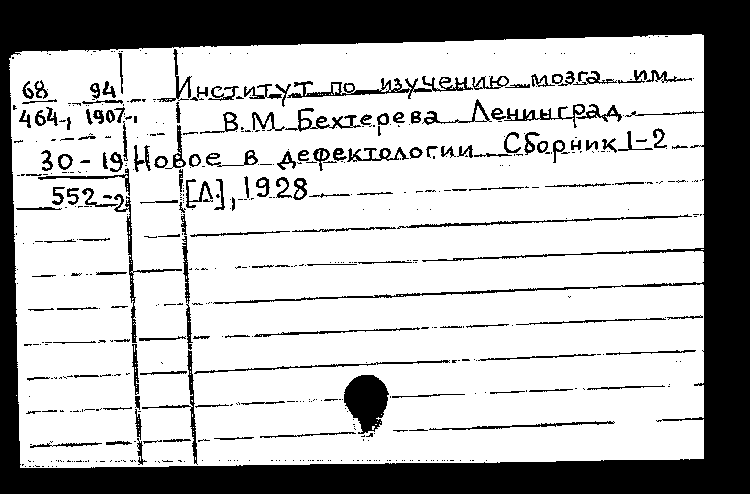 68 94 Институт по изучению мозга им.
464-1 1907-1 В.М. Бехтерева Ленинград.
30-19 Новое в дефектологии Сборник 1-2
552-2 [Л.], 1928